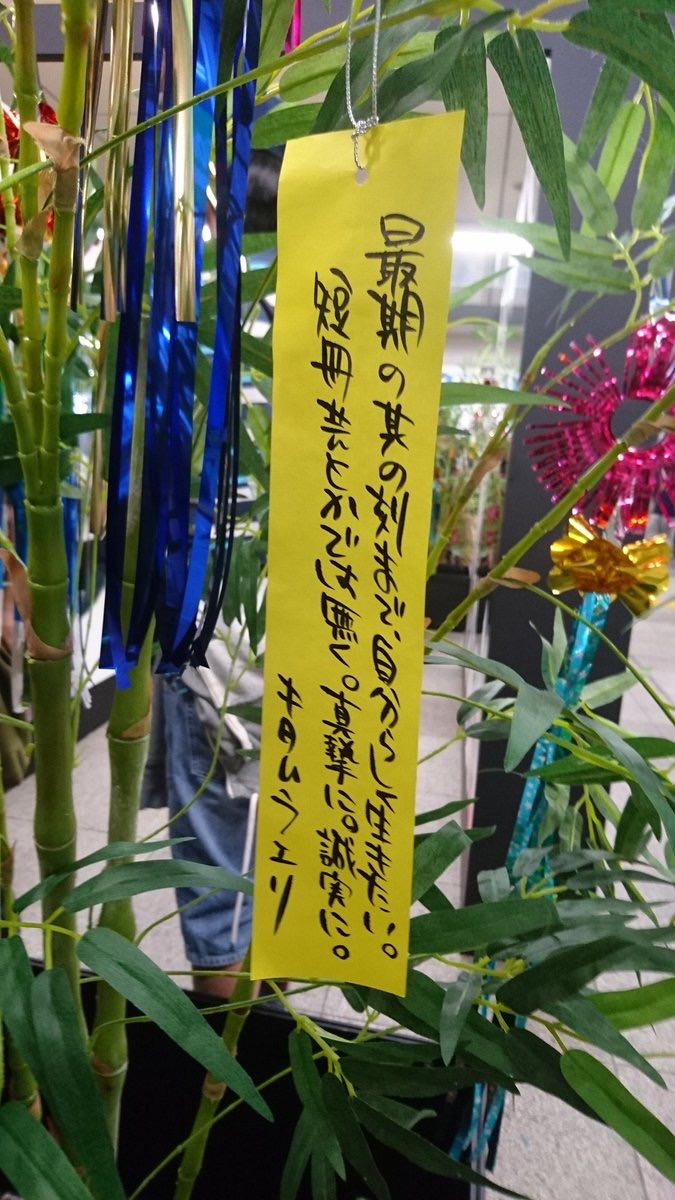 最期の其の刻まで、自分らしく生きたい。
(短冊芸とかでは無く。真摯に。誠実に。